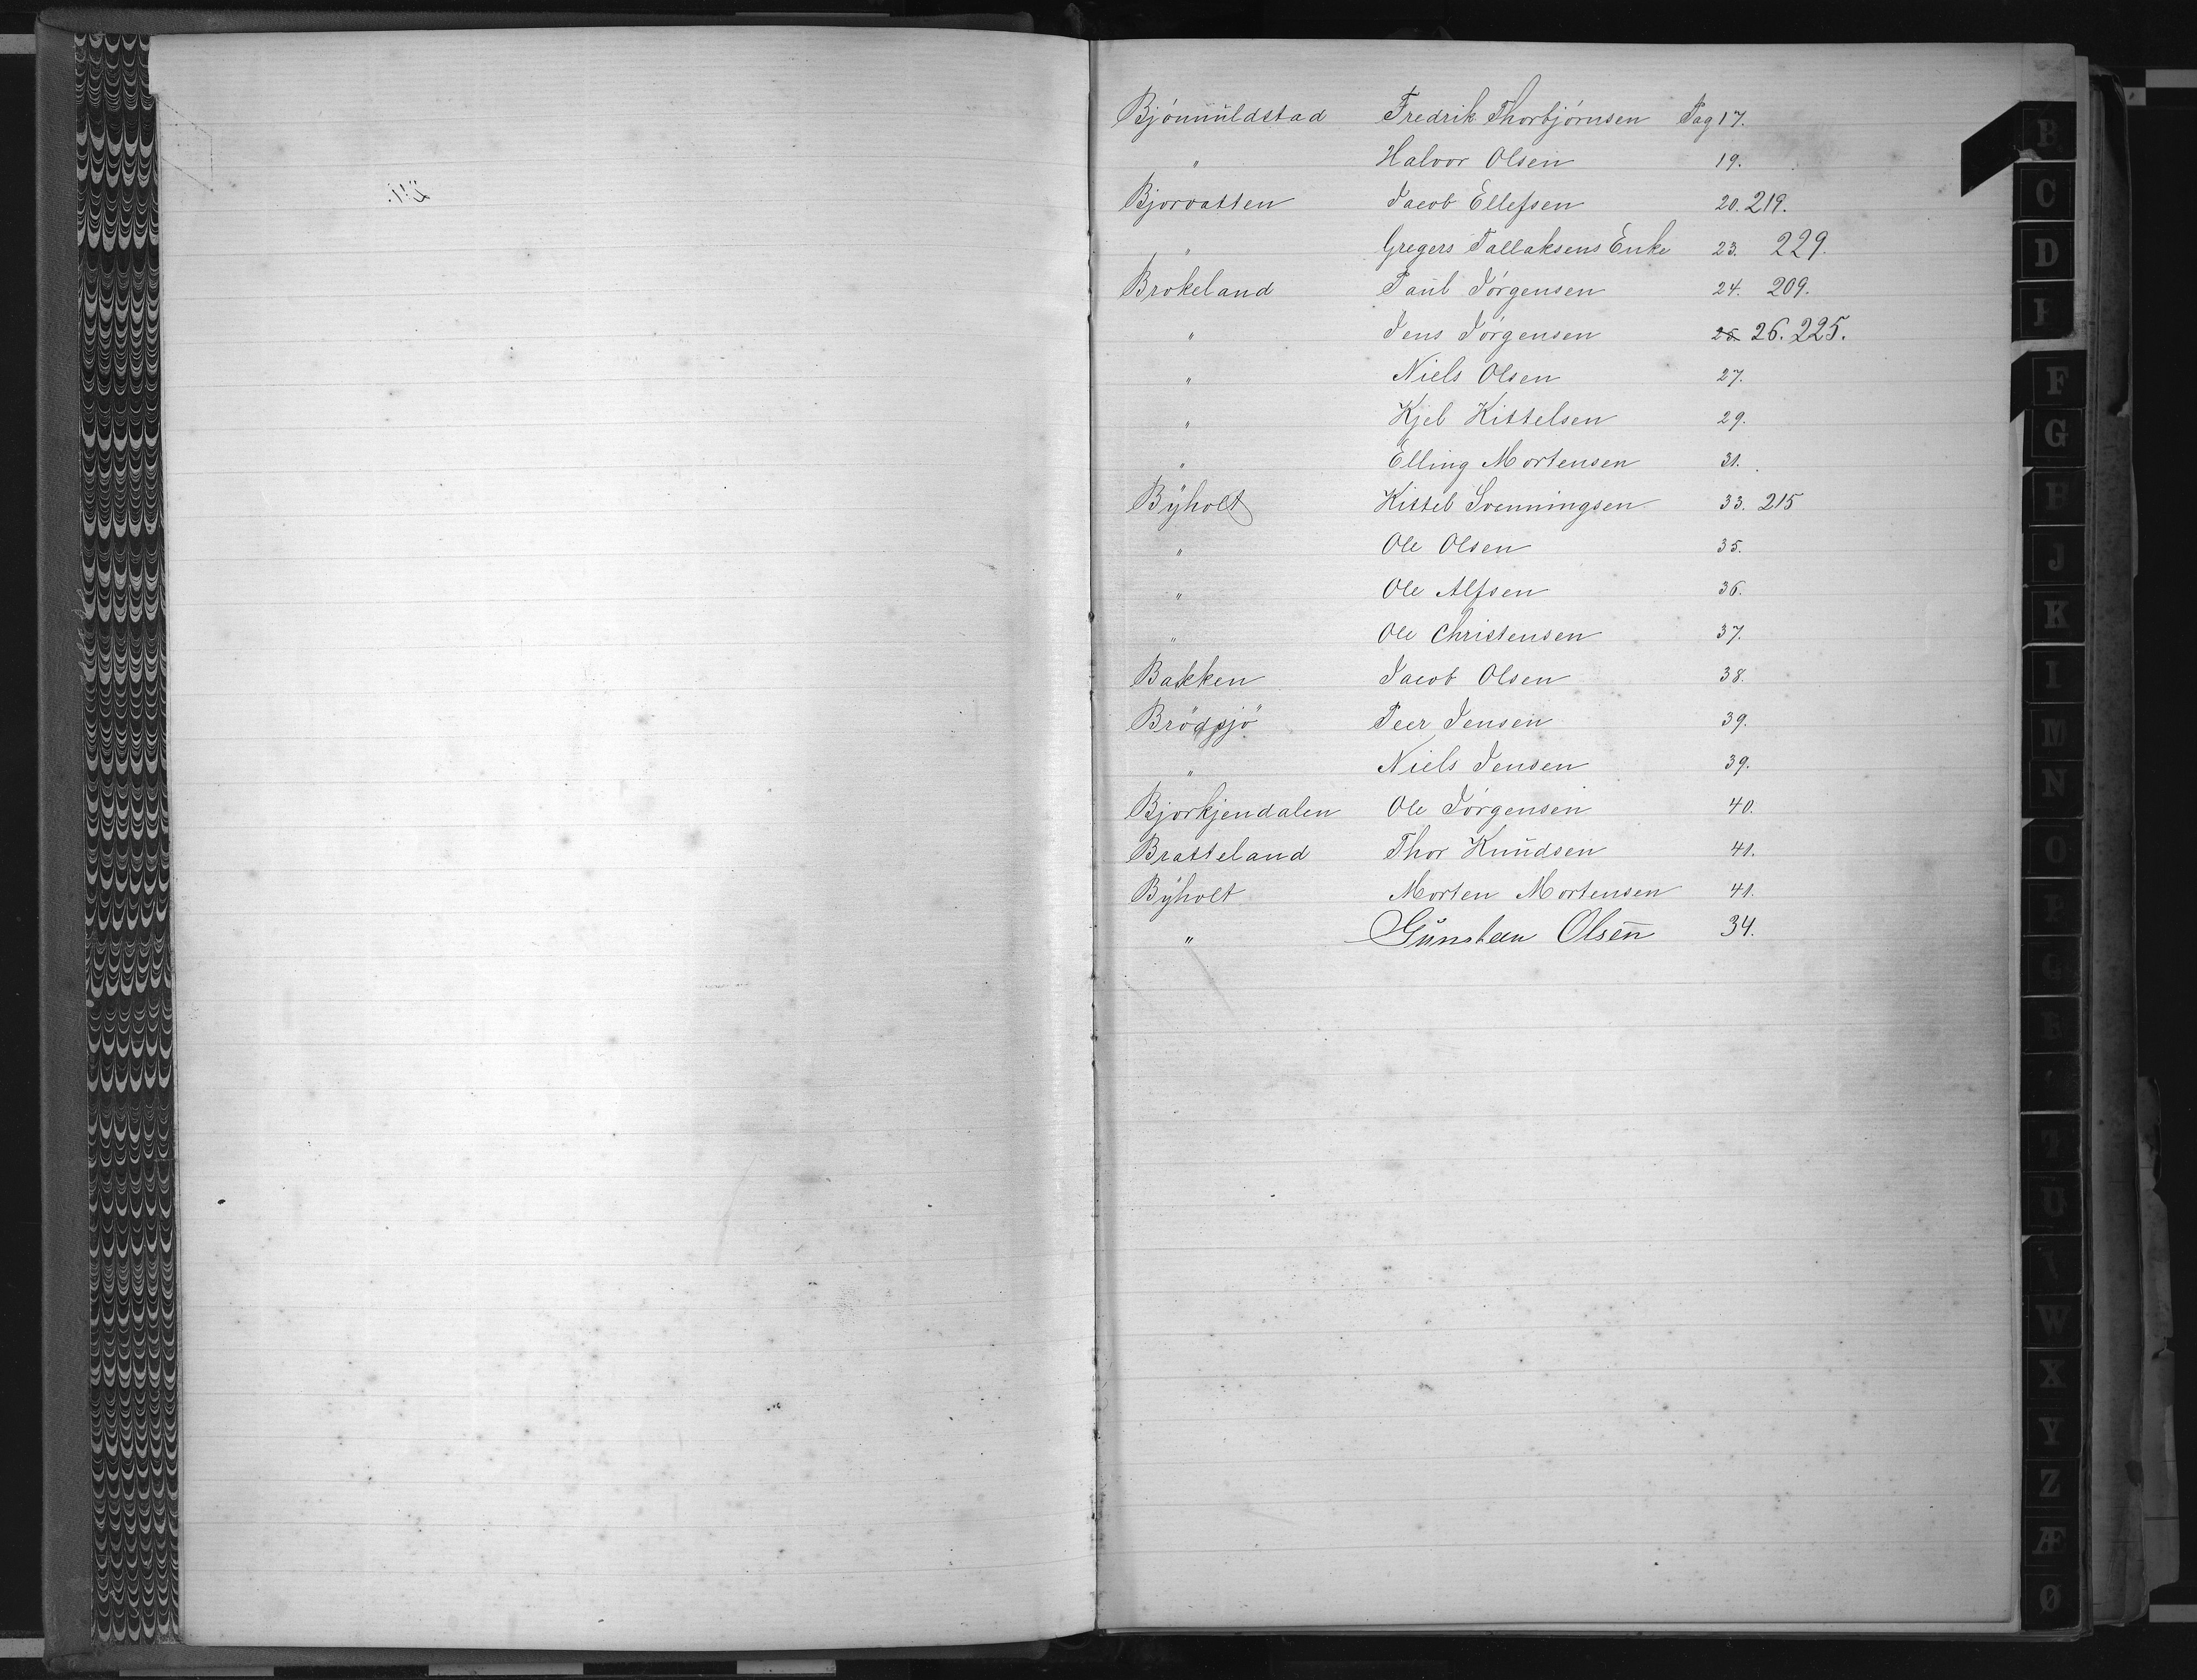 Bjönnüldstad Fredrik Thorbjörnsen Pag 17.
" Halvor Olsen 19.
Bjorvatten Jacob Ellefsen 20. 219.
" Gregers Tallaksens Enke 23. 229.
Brokeland Paul Jörgensen 24. 209.
" Jens Jörgensen 25 26. 225.
" Niels Olsen 27.
" Kjel Kittelsen 29.
" Elling Mortensen 31.
Byholt Kittel Svenningsen 33. 215
" Ole Olsen 35.
" Ole Alfsen 36.
" Ole Christensen 37.
Bakken Jacob Olsen 38.
Brödsjö Peer Jensen 39.
" Niels Jensen 39.
Bjorkjendalen Ole Jörgensen 40.
Bratteland Thor Knudsen 41.
Byholt Morten Mortensen 41.
" Gunsteen Olsen 34.
B
C
D
F
G
J
K
I
M
N
O
P
U
W
X
Y
Z
Æ
Ø